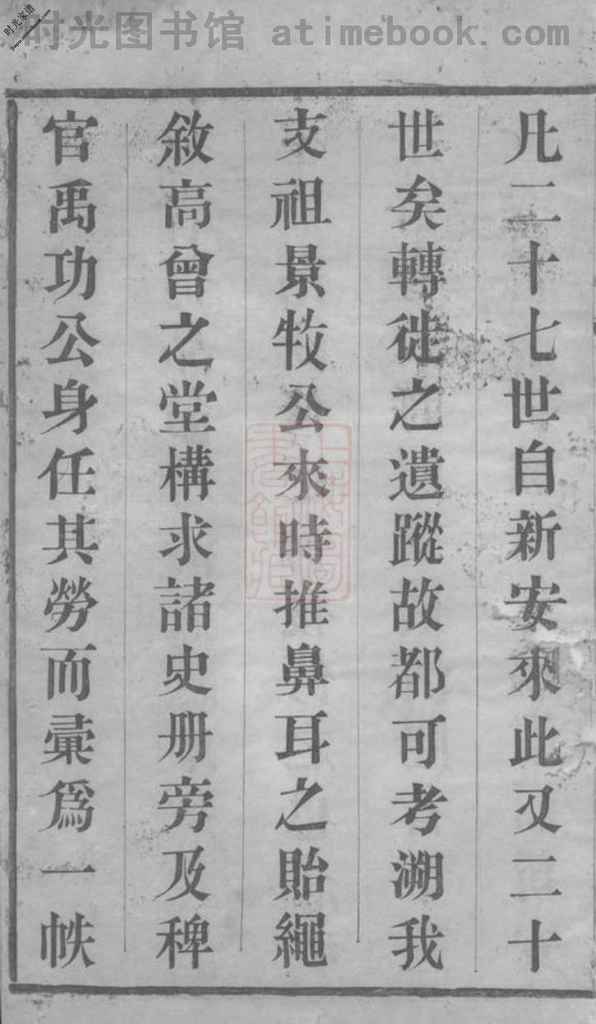 时光图书馆 atimebook.com
时光家谱
凡二十七世自新安來此又二十
世矣轉徙之遺蹤故都可考溯我
支祖景牧公來時推鼻耳之貽繩
敘高曾之堂構求諸史册旁及稗
官禹功公身任其勞而彚爲一帙